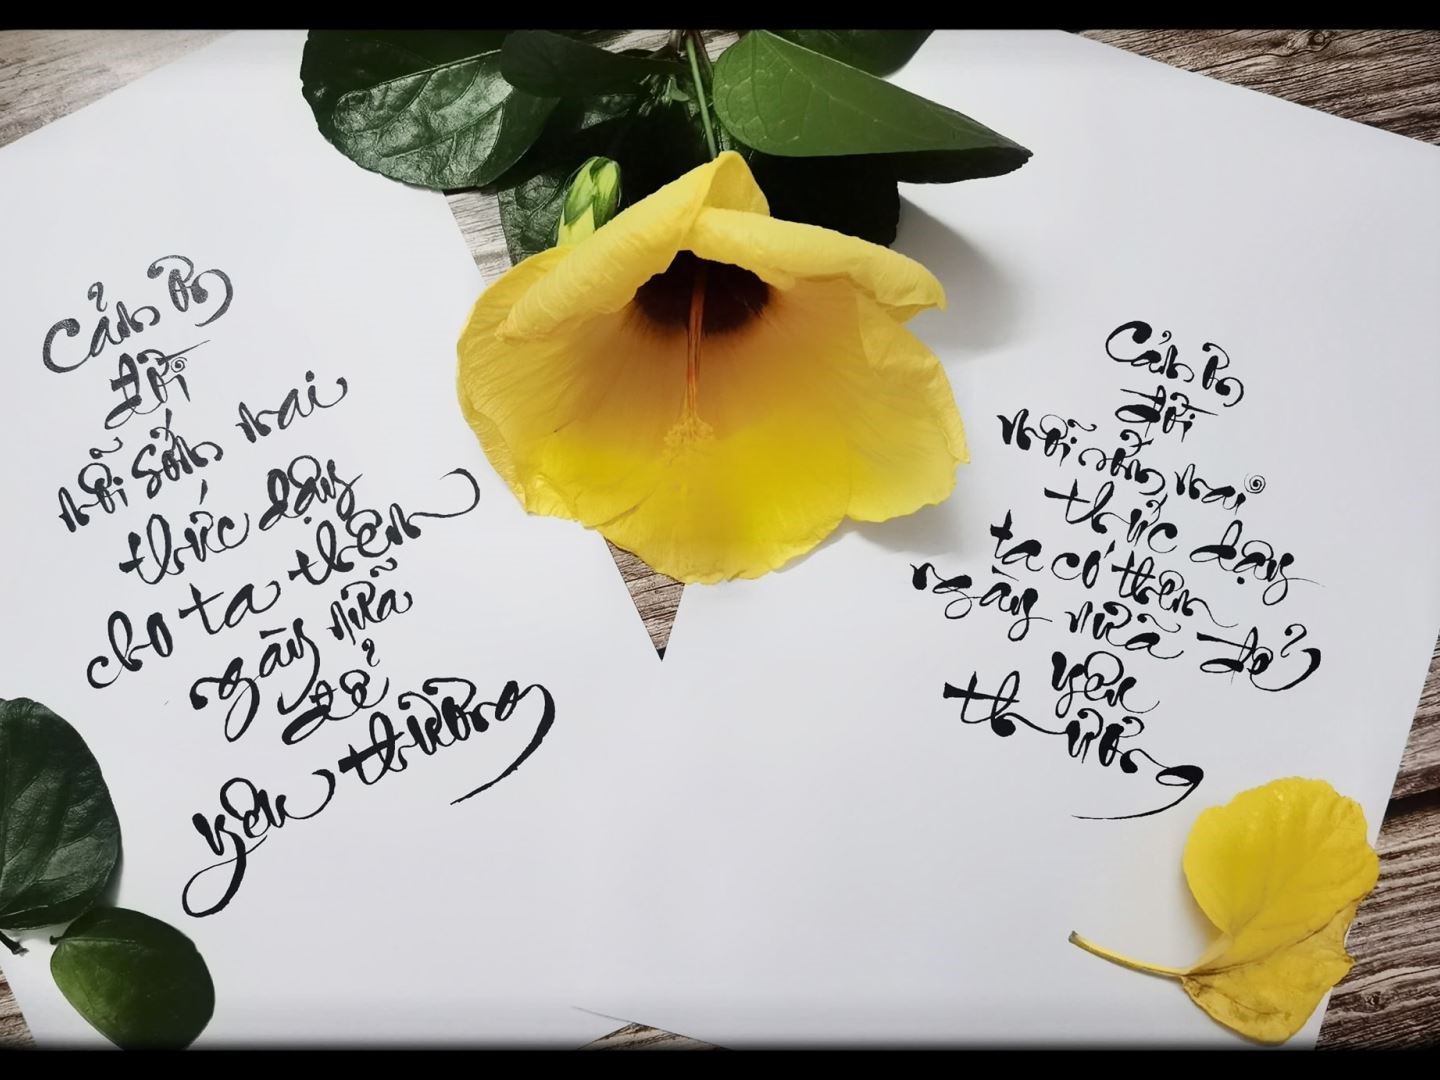 Cảm ơn
đời
mỗi sớm mai
thức dậy
cho ta thêm
ngày nữa
để
yêu thương
Cảm ơn
đời
mỗi sớm mai
thức dậy
ta có thêm
ngày nữa để
yêu
thương